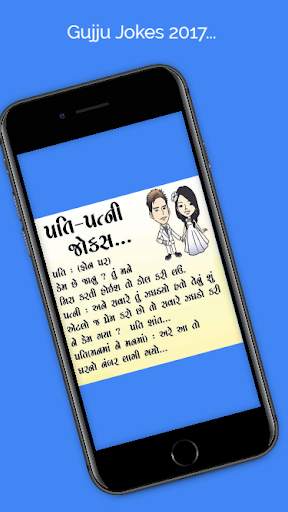 Gujju Jokes 2017...
પતિ-પત્ની
જોક્સ...
પતિ : (ફોન પર)
કેમ છે જાનુ ? તું મને
મિસ કરતી હોઈશ તો કોલ કરી લઉં.
પત્ની : અને સવારે તું ઝઘડ્યો હતો તેનું શું
એટલો જ પ્રેમ કરો છો તો સવારે ઝઘડો કરી
ને કેમ ગયા ? પતિ શાંત...
પતિ(મનમાં ને મનમાં): અરે આ તો
ઘરનો નંબર લાગી ગયો...